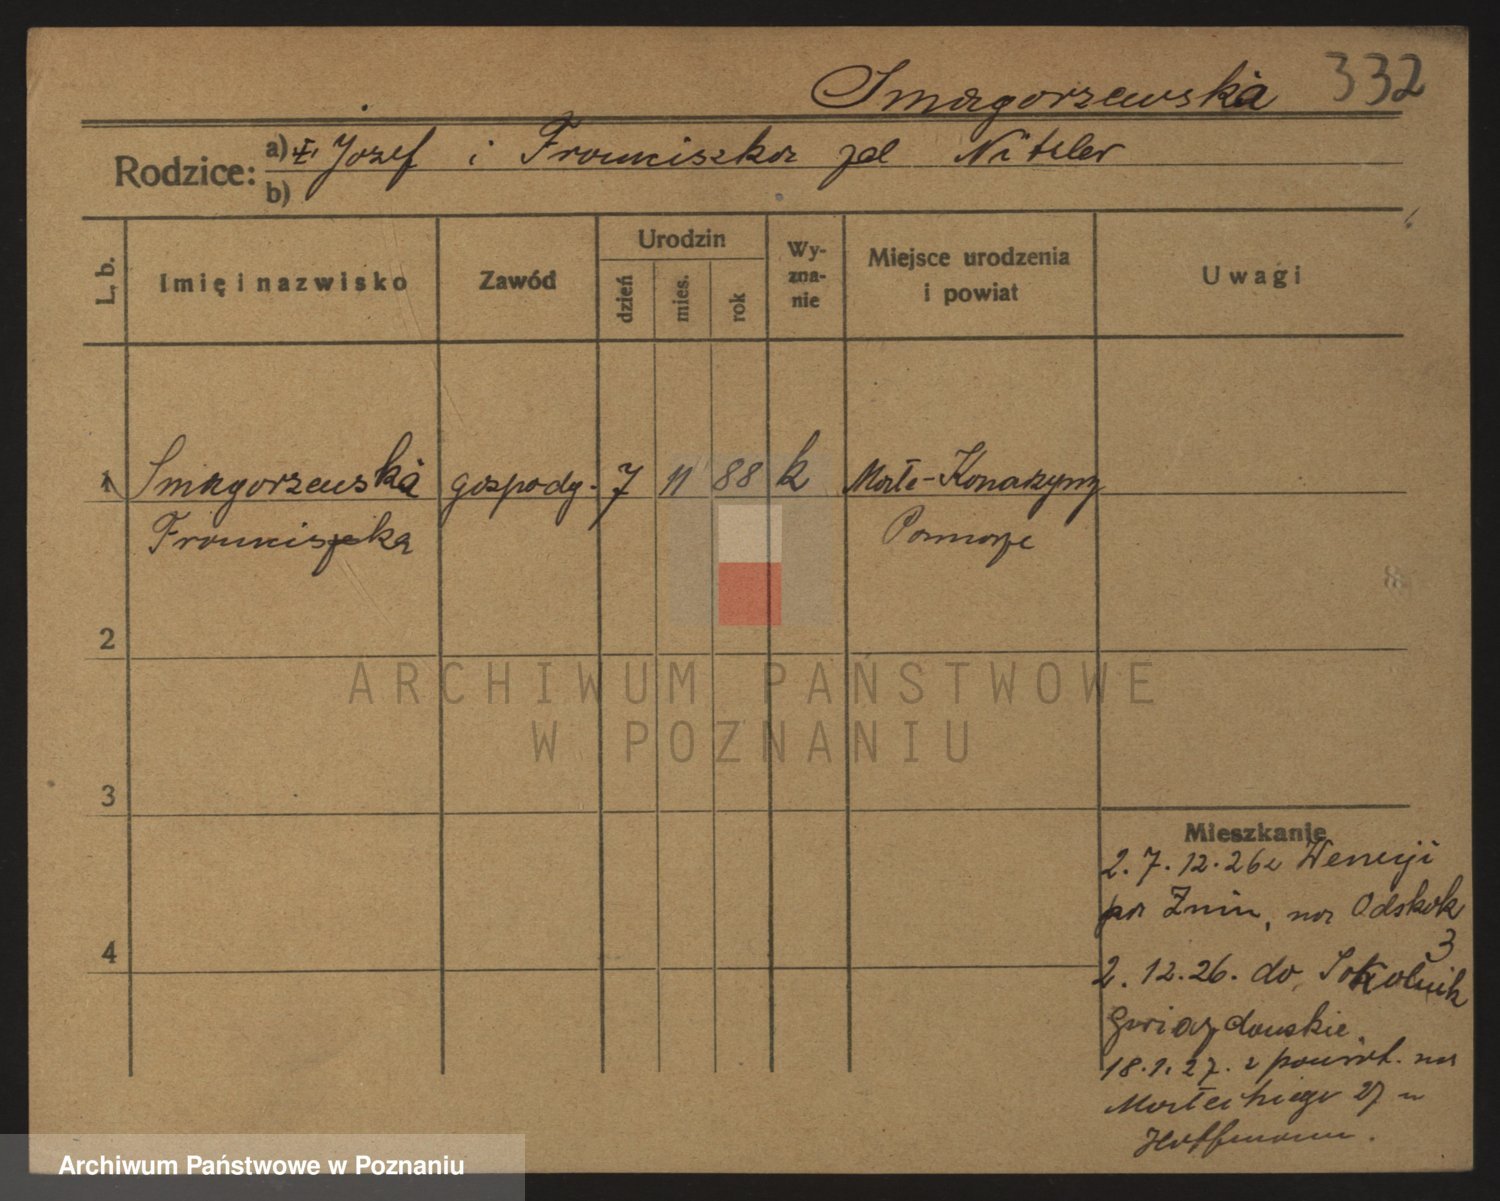 Smagorzewska 332
Rodzice: a) Józef i Franciszka zd Nitzler
b)
L. b. Imię i nazwisko Zawód Urodzin dzień mies. rok Wyzna-nie Miejsce urodzenia i powiat Uwagi
1 Smagorzewska gospody. 7 11 88 k Małe-Konarzyny
Franciszka Pomorze
2
3
4
Mieszkanie
2.7.12.26 z Wenecji
Żnin, na Odskok
3
2.12.26. do Sokolnik
Gwiazdowskie.
18.1.27. z powrot. na
Małeckiego 27 u
Hoffmann.
ARCHIWUM PAŃSTWOWE
W POZNANIU
Archiwum Państwowe w Poznaniu